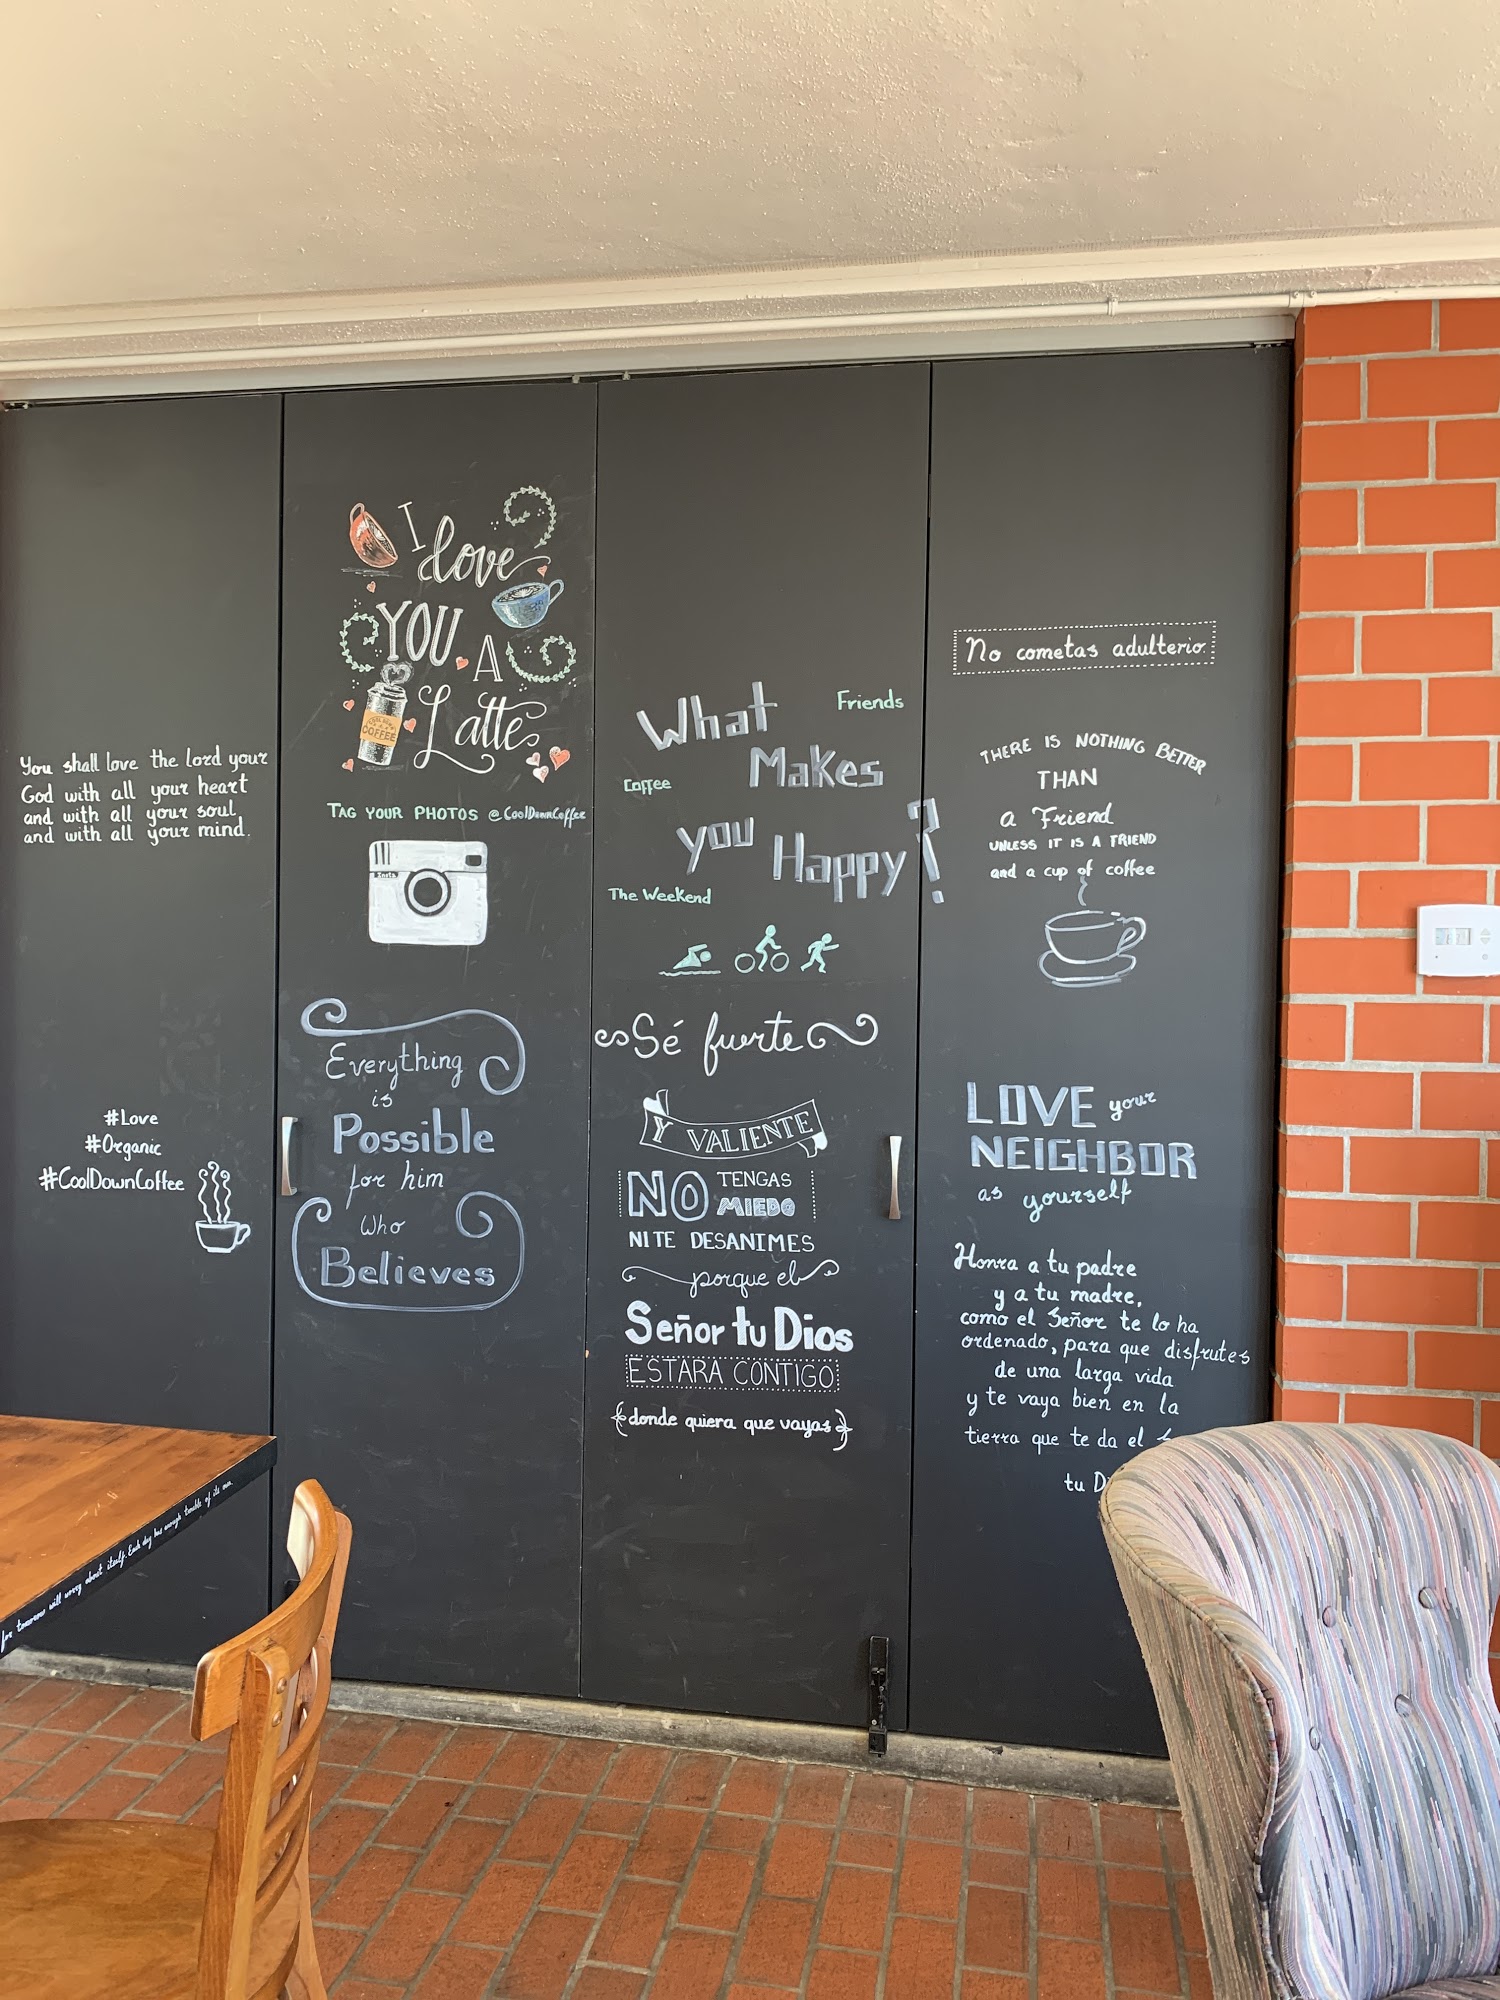 You shall love the lord your
God with all your heart
and with all your soul
and with all your mind.
#Love
#Organic
#CoolDownCoffee
I
love
YOU A
Latte
COFFEE
TAG YOUR PHOTOS @CoolDownCoffee
Insta
Everything
is
Possible
for him
Who
Believes
What
Friends
Makes
Coffee
you Happy?
The Weekend
Sé fuerte
Y VALIENTE
NO TENGAS
MIEDO
NI TE DESANIMES
porque el
Señor tu Dios
ESTARA CONTIGO
donde quiera que vayas
No cometas adulterio.
THERE IS NOTHING BETTER
THAN
a Friend
UNLESS IT IS A FRIEND
and a cup of coffee
LOVE your
NEIGHBOR
as yourself
Honra a tu padre
y a tu madre,
como el Señor te lo ha
ordenado, para que disfrutes
de una larga vida
y te vaya bien en la
tierra que te da el
tu
for tomorrow will worry about itself. Each day has enough trouble of its own.